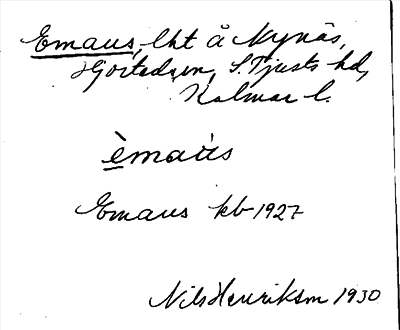 Emaus, lht å Nynäs,
Hjorteds sn, S. Tjusts hd,
Kalmar l.
èmaùs
Emaus kb 1927
Nils Henriksm 1930